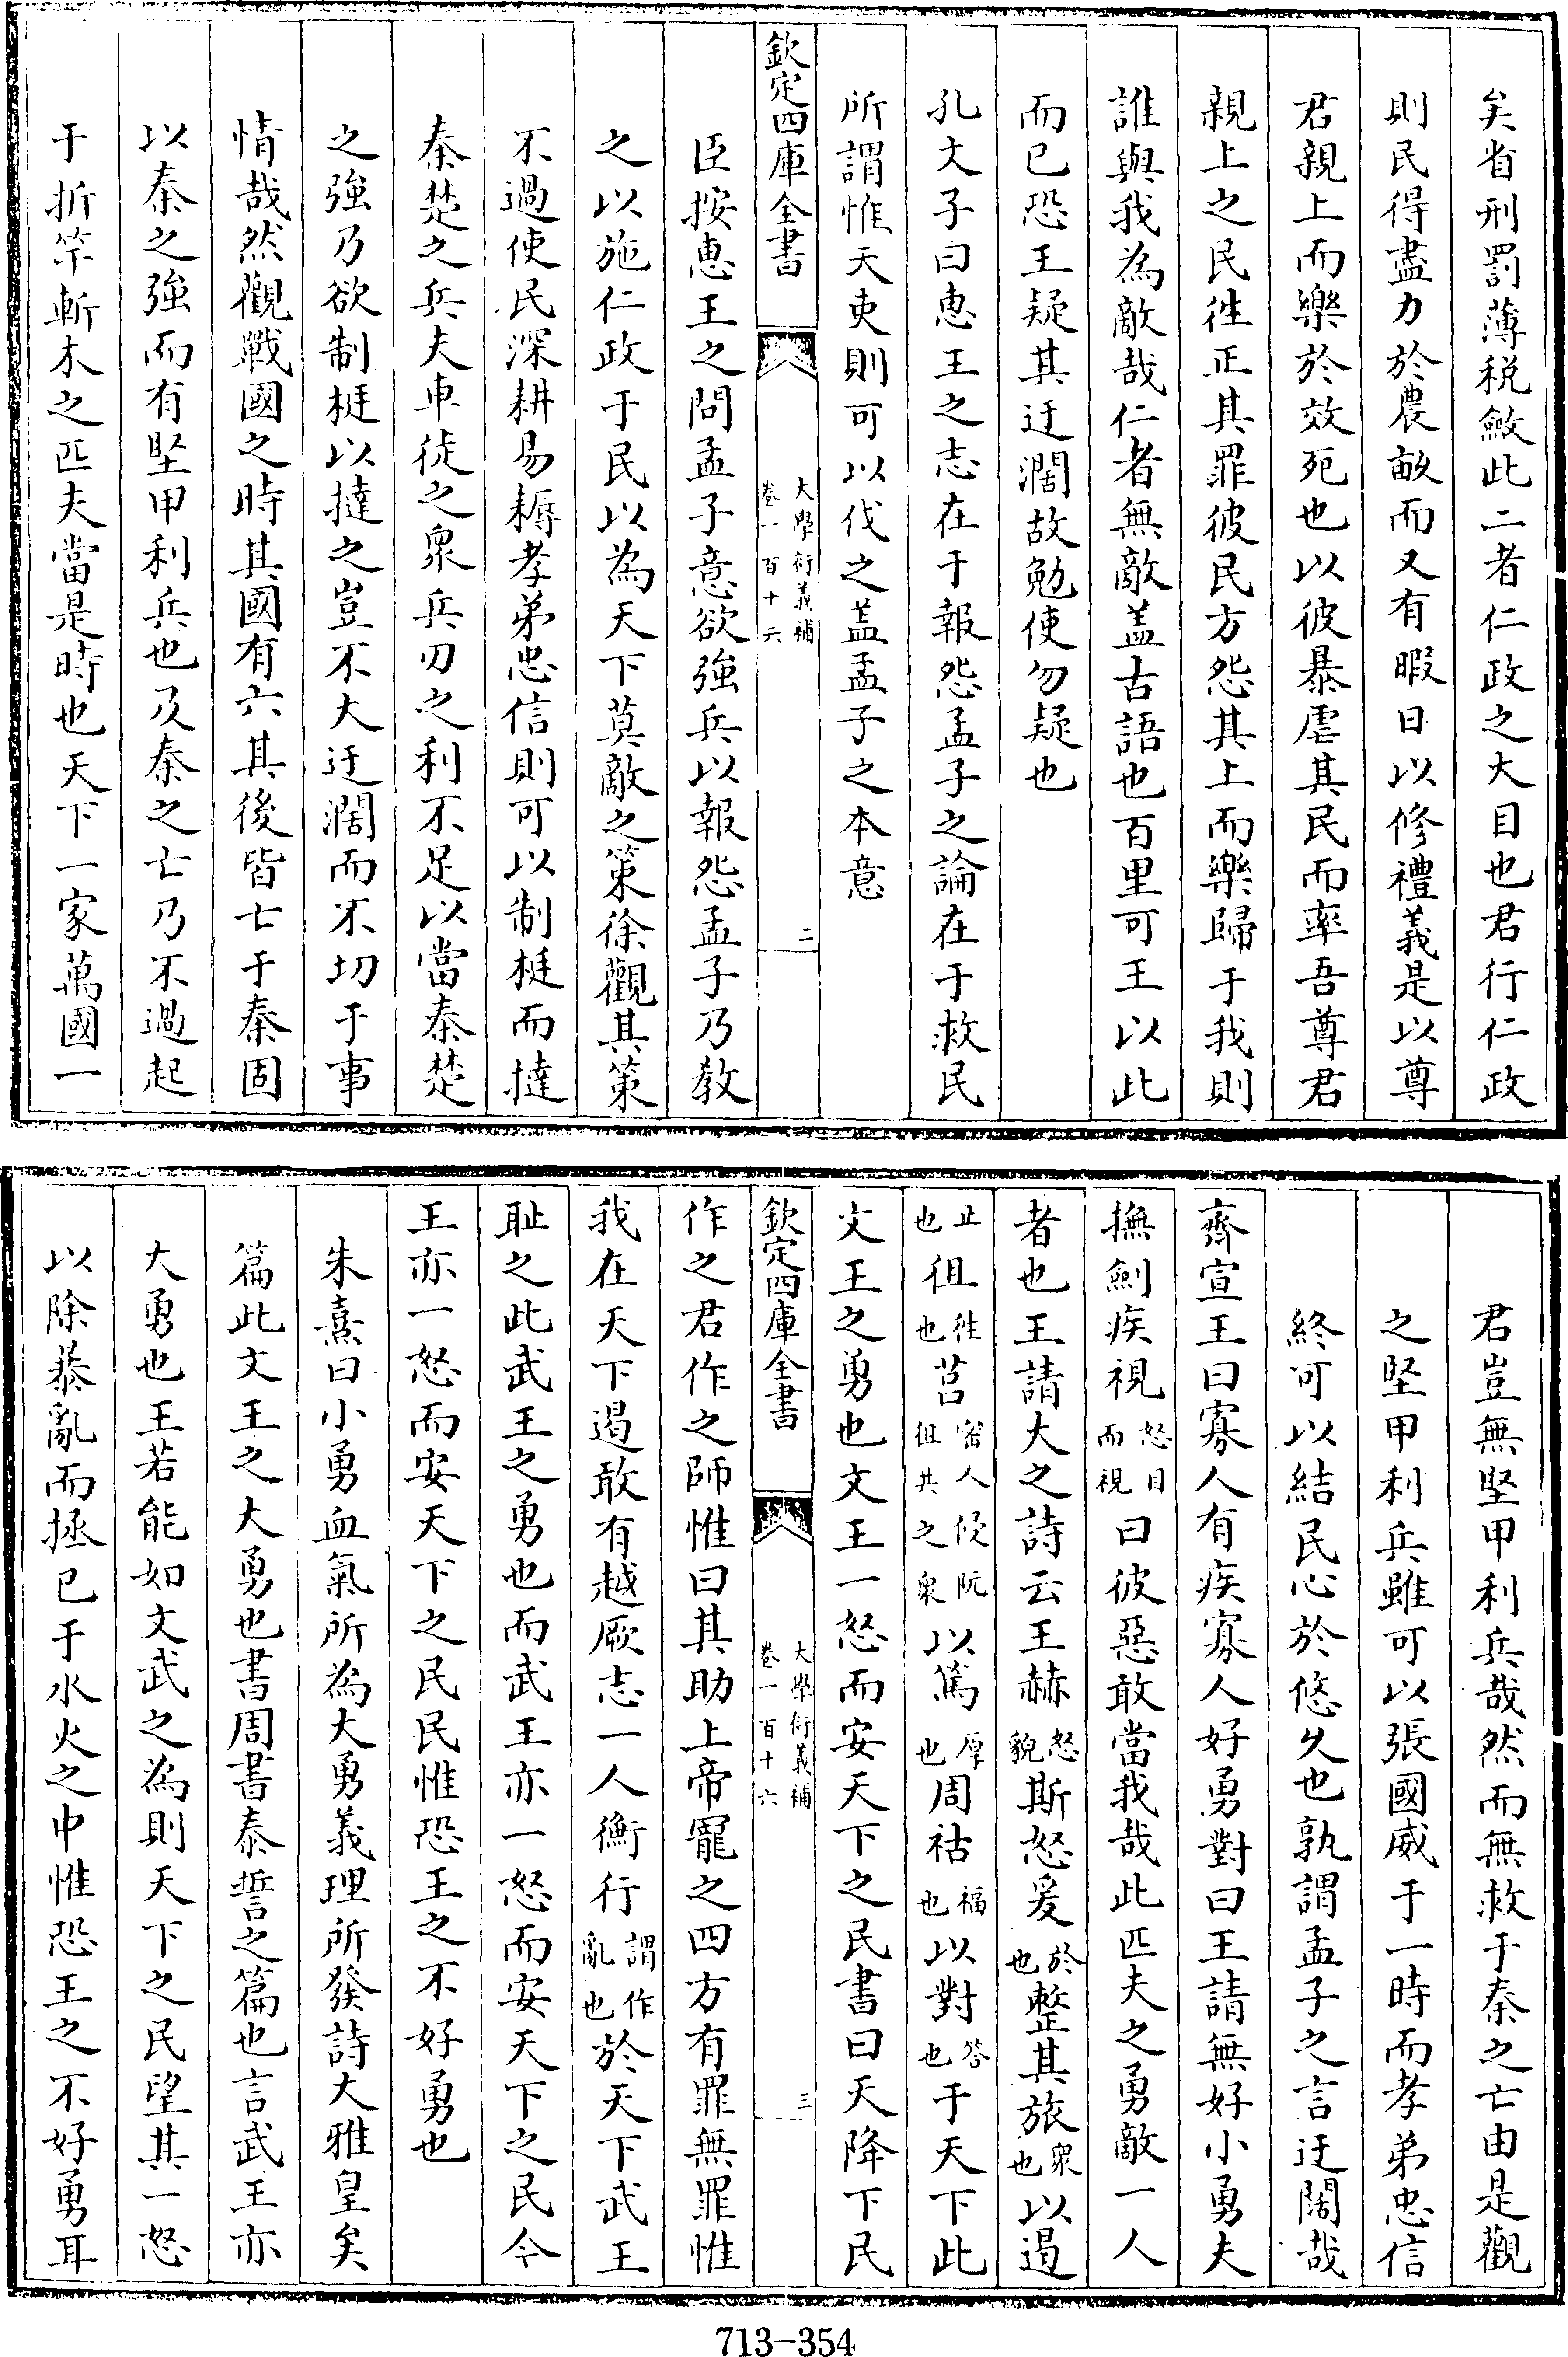 矣省刑罰薄稅斂此二者仁政之大目也君行仁政
則民得盡力於農畝而又有暇日以修禮義是以尊
君親上而樂於效死也以彼暴虐其民而率吾尊君
親上之民徃正其罪彼民方怨其上而樂歸于我則
誰與我為敵哉仁者無敵盖古語也百里可王以此
而已恐王疑其迂濶故勉使勿疑也
孔文子曰恵王之志在于報怨孟子之論在于救民
所謂惟天吏則可以伐之盖孟子之本意
欽定四庫全書
大學衍義補
卷一百十六
二
臣按恵王之問孟子意欲強兵以報怨孟子乃教
之以施仁政于民以為天下莫敵之策徐觀其策
不過使民深耕易耨孝弟忠信則可以制梃而撻
秦楚之兵夫車徒之衆兵刃之利不足以當秦楚
之強乃欲制梃以撻之豈不大迂濶而不切于事
情哉然觀戰國之時其國有六其後皆亡于秦固
以秦之強而有堅甲利兵也及秦之亡乃不過起
于折竿斬木之匹夫當是時也天下一家萬國一
君豈無堅甲利兵哉然而無救于秦之亡由是觀
之堅甲利兵雖可以張國威于一時而孝弟忠信
終可以結民心於悠久也孰謂孟子之言迂闊哉
齊宣王曰寡人有疾寡人好勇對曰王請無好小勇夫
撫劍疾視怒目而視曰彼惡敢當我哉此匹夫之勇敵一人
者也王請大之詩云王赫怒貌斯怒爰於也整其旅衆也以遏
止也徂徃也莒密人侵阮徂共之衆以篤厚也周祜福也以對答也于天下此
文王之勇也文王一怒而安天下之民書曰天降下民
欽定四庫全書
大學衍義補
卷一百十六
三
作之君作之師惟曰其助上帝寵之四方有罪無罪惟
我在天下遏敢有越厥志一人衡行謂作亂也於天下武王
耻之此武王之勇也而武王亦一怒而安天下之民今
王亦一怒而安天下之民民惟恐王之不好勇也
朱熹曰小勇血氣所為大勇義理所發詩大雅皇矣
篇此文王之大勇也書周書泰誓之篇也言武王亦
大勇也王若能如文武之為則天下之民望其一怒
以除暴亂而拯已于水火之中惟恐王之不好勇耳
713-354